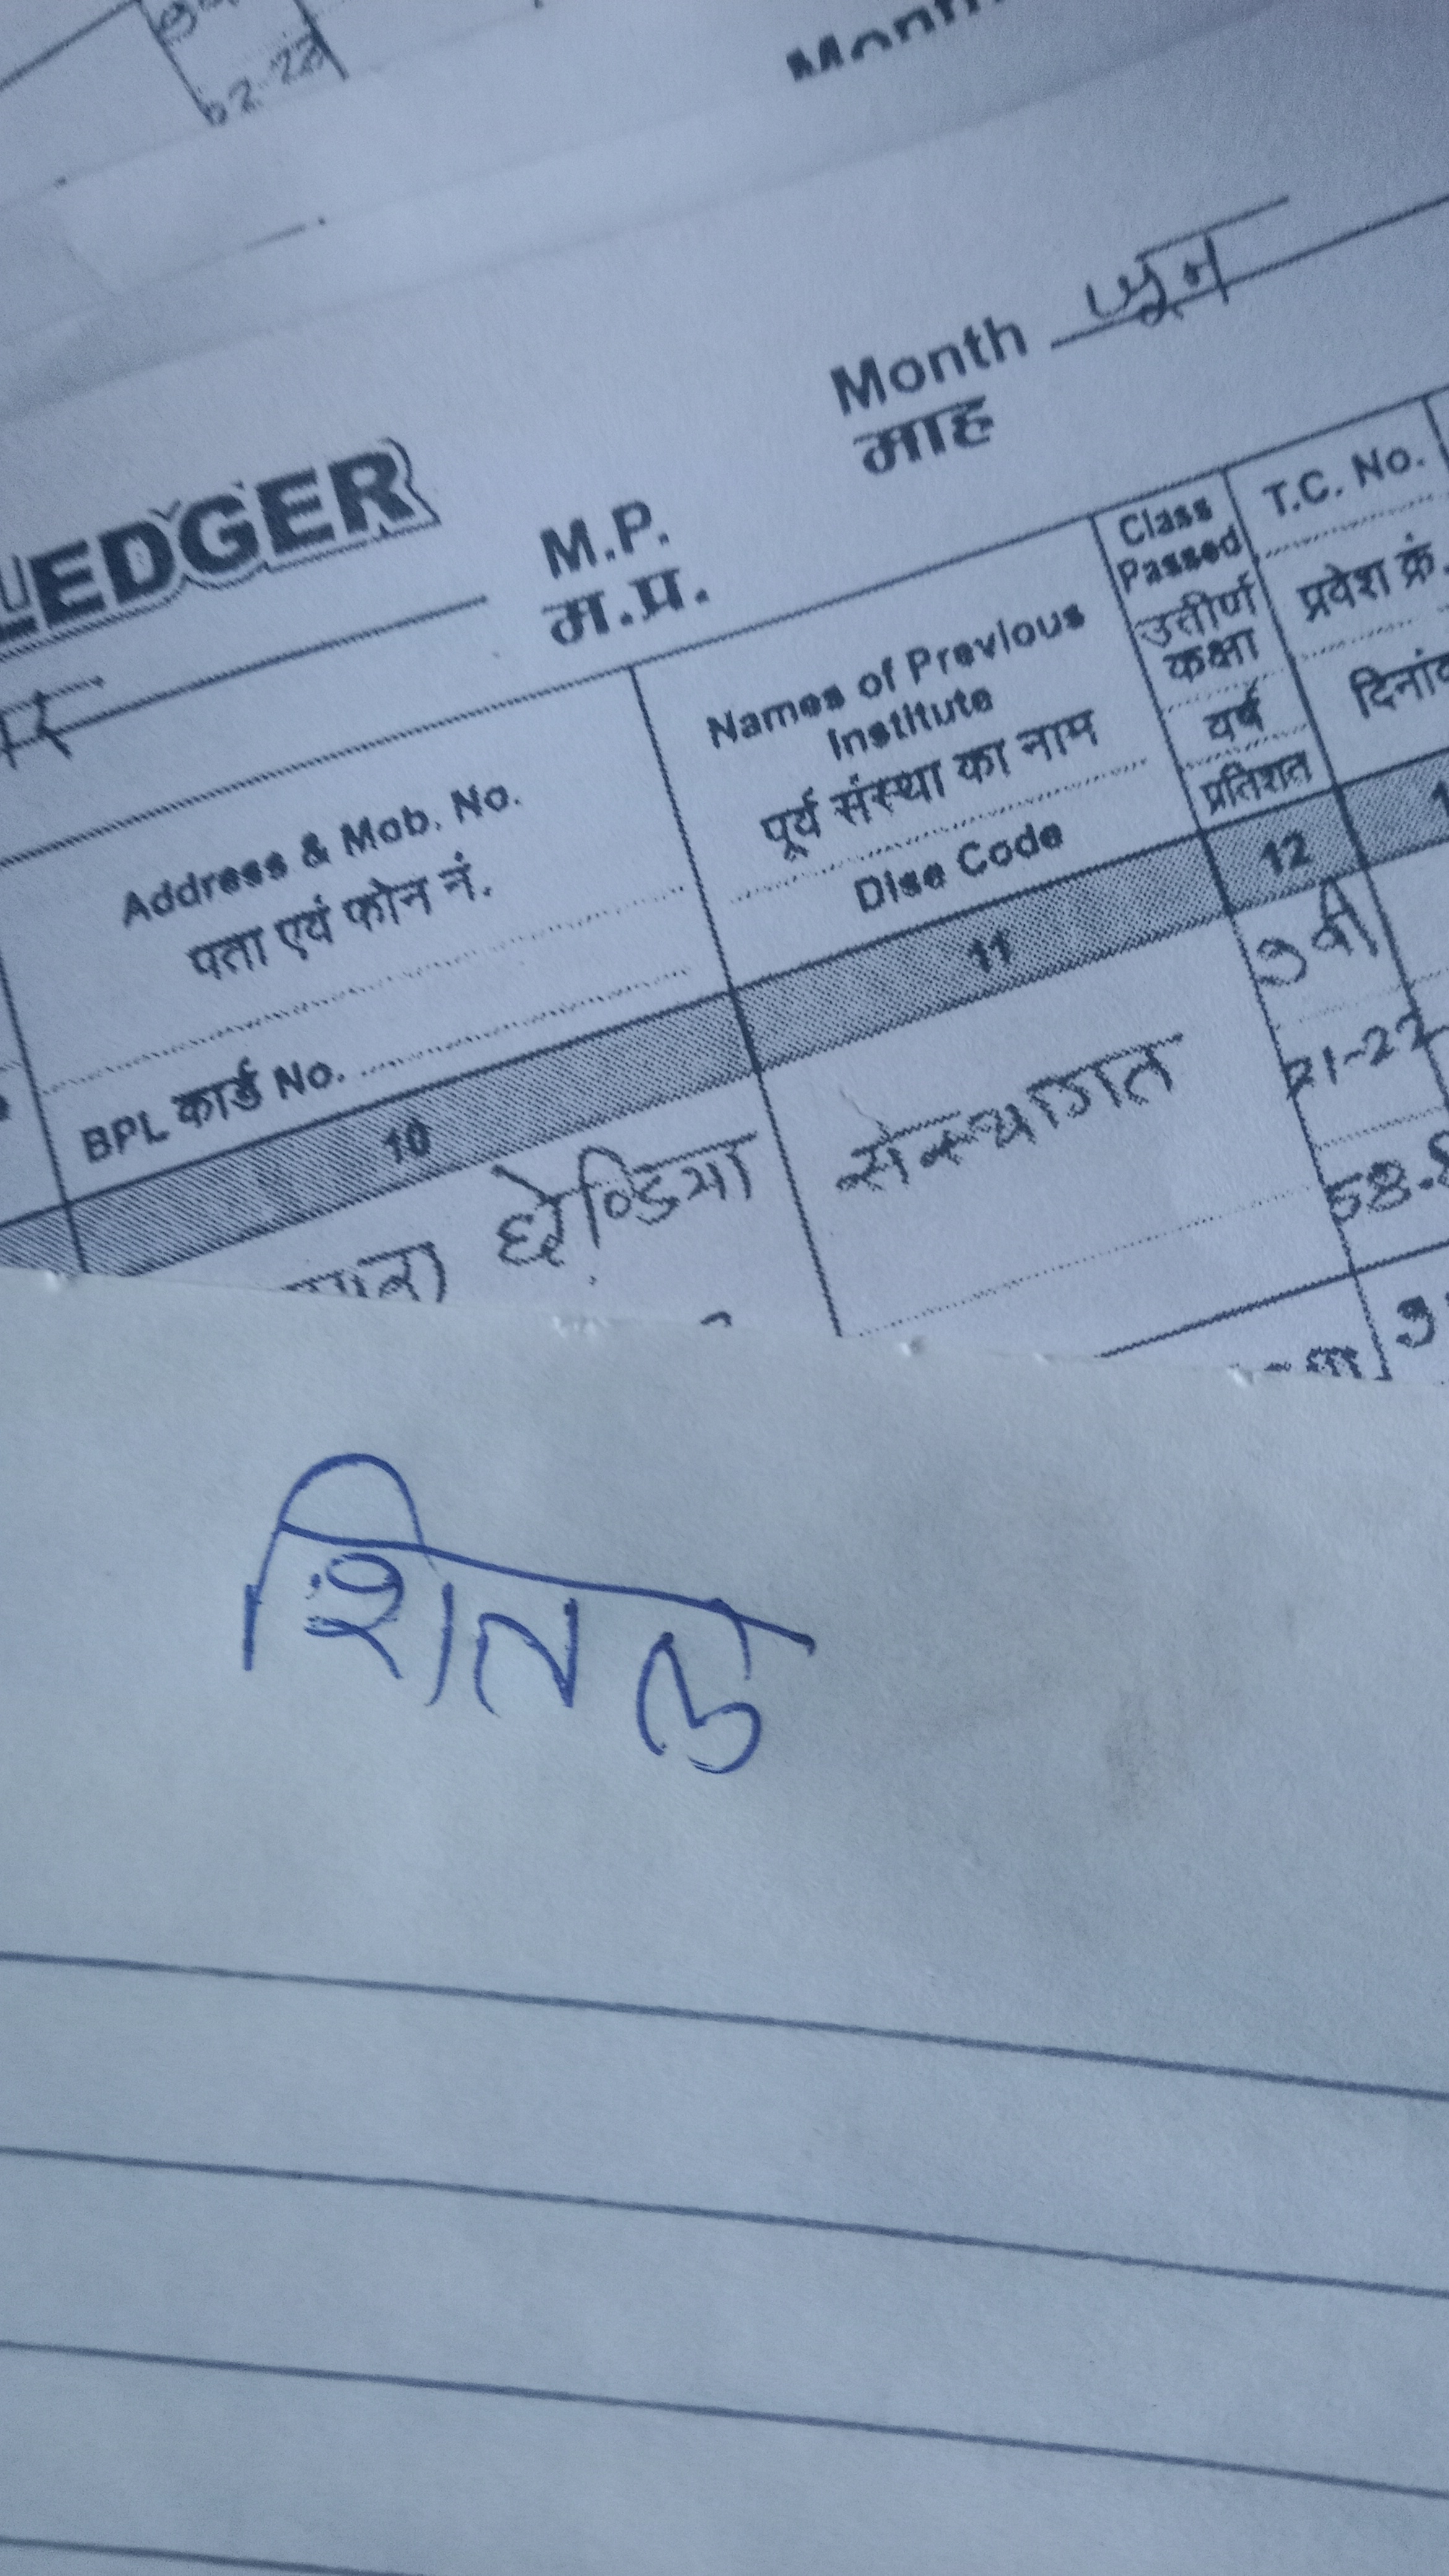 02-22
Month
Month जून
माह
LEDGER
M.P.
म.प्र.
Address & Mob. No.
पता एवं फोन नं.
BPL कार्ड No.
Names of Previous
Institute
पूर्व संस्था का नाम
Dise Code
Class
Passed
उत्तीर्ण
कक्षा
वर्ष
प्रतिशत
T.C. No.
प्रवेश क्रं.
10
11
12
संस्थागत
9 वी
21-22
58.8
शितल